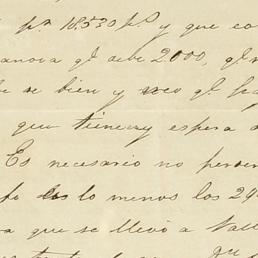 pr. 18.530 ps y que co
anova qe debe 2000, qe
se bien y veo qe ha
que tienen y espera
Es necesario no perder
los lo menos los 29
a que se llevó a Vall
qu